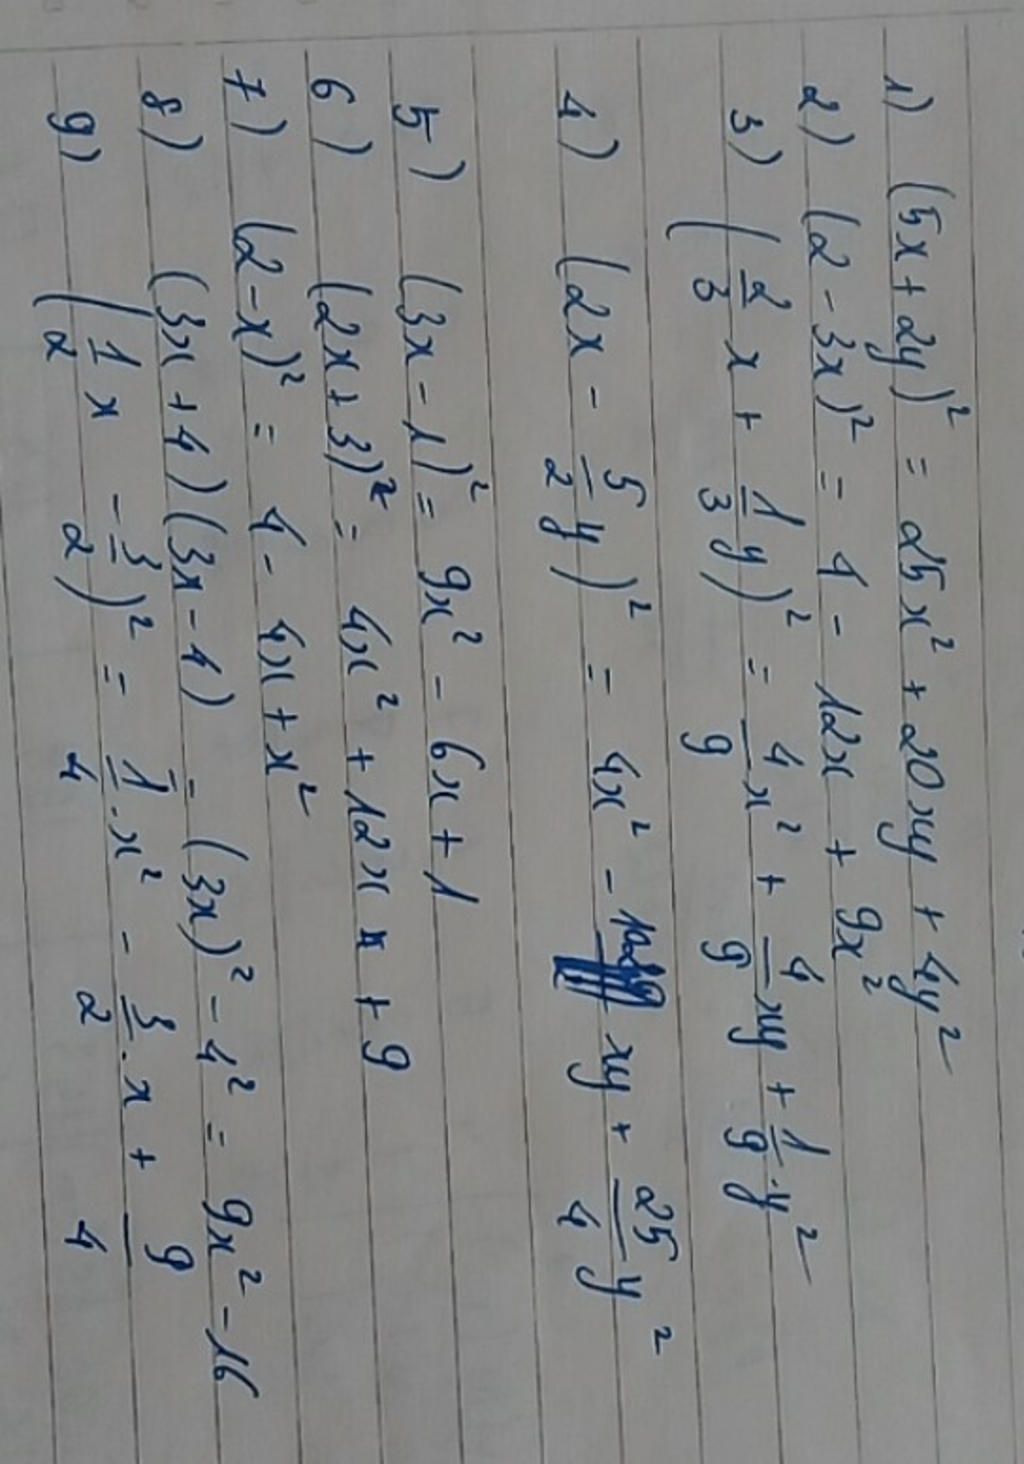 1) (5x + 2y)² = 25x² + 20xy + 4y²
2) (2 - 3x)² = 4 - 12x + 9x²
3) (2/3 x + 1/3 y)² = 4/9 x² + 4/9 xy + 1/9 . y²
4) (2x - 5/2 y)² = 4x² - xy + 25/4 y²
5) (3x - 1)² = 9x² - 6x + 1
6) (2x + 3)² = 4x² + 12x + 9
7) (2 - x)² = 4 - 4x + x²
8) (3x + 4)(3x - 4) = (3x)² - 4² = 9x² - 16
9) (1/2 x - 3/2)² = 1/4 . x² - 3/2 . x + 9/4